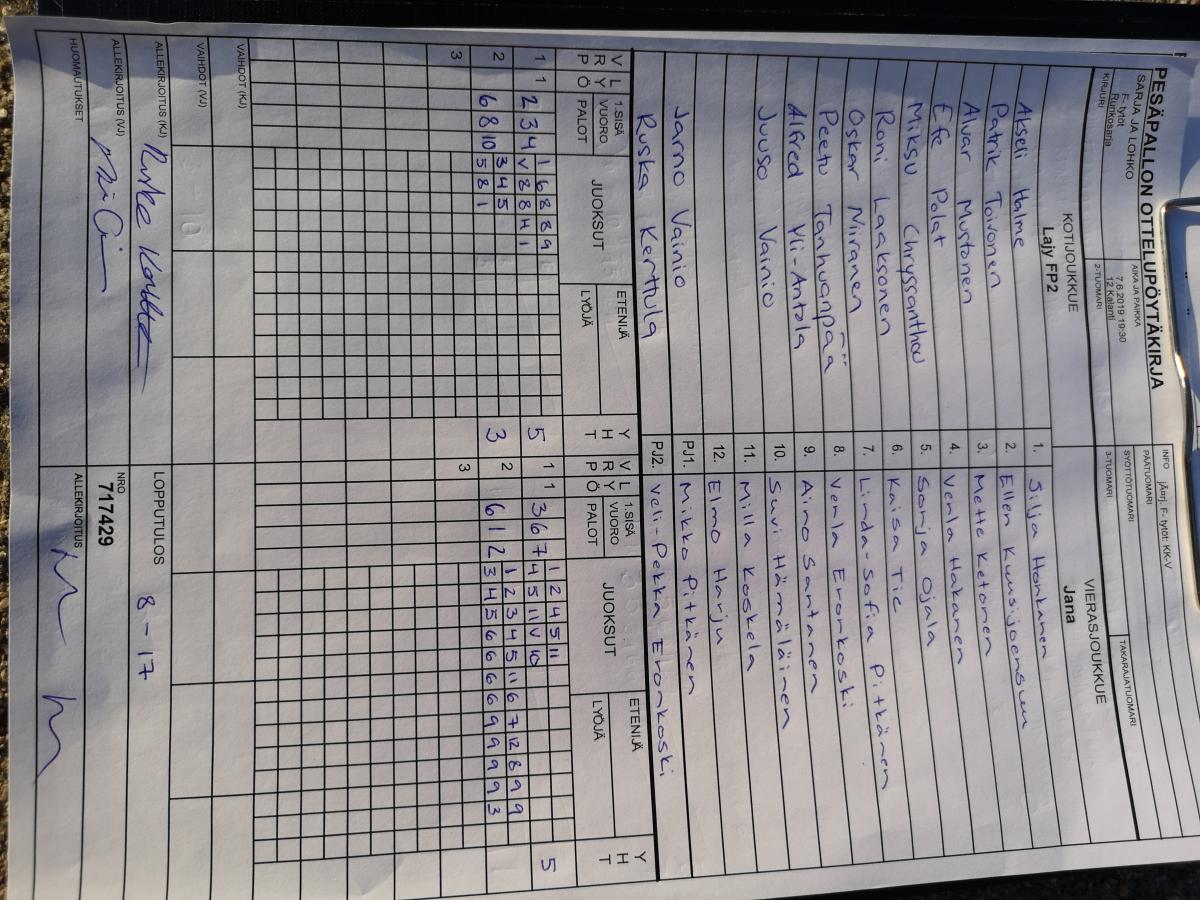 PESÄPALLON OTTELUPÖYTÄKIRJA
SARJA JA LOHKO
F- tytöt
Runkosarja
AIKA JA PAIKKA
7.6.2019 19:30
12 Kalanti
INFO jÄarj. F- tytöt: KK-V
PÄÄTUOMARI
SYÖTTÖTUOMARI
TAKARAJATUOMARI
KIRJURI
2-TUOMARI
3-TUOMARI
KOTIJOUKKUE
Lajy FP2
VIERASJOUKKUE
Jana
Akseli Halme
1. Silja Honkanen
Patrik Toivonen
2. Ellen Kuusijoensuu
Alvar Mustonen
3. Mette Ketonen
Efe Polat
4. Venla Hakanen
Miksu Chryssanthou
5. Sonja Ojala
Roni Laaksonen
6. Kaisa Tie
Oskar Niiranen
7. Linda-Sofia Pitkänen
Peetu Tanhuanpää
8. Venla Eronkoski
Alfred Yli-Antola
9. Aino Santanen
Juuso Vainio
10. Suvi Hämäläinen
11. Milla Koskela
12. Elmo Harju
Jarno Vainio
PJ1. Mikko Pitkänen
Ruska Kerttula
PJ2. Veli-Pekka Eronkoski
V R P
L Y Ö
1.SISÄ VUORO PALOT
JUOKSUT
ETENIJÄ
LYÖJÄ
Y H T
V R P
L Y Ö
1.SISÄ VUORO PALOT
JUOKSUT
ETENIJÄ
LYÖJÄ
Y H T
1 6 8 8 9
1 2 4 5 11
1 1 2 3 4 V 8 8 H 1 5
1 1 3 6 7 4 5 11 V 10 5
3 4 5
1 2 3 4 5 11 6 7 12 8 9 9
2 6 8 10 5 8 1 3
2 6 1 2 3 4 5 6 6 6 6 9 9 9 9 3
3
3
VAIHDOT (KJ)
VAIHDOT (VJ)
ALLEKIRJOITUS (KJ)
LOPPUTULOS 8 - 17
ALLEKIRJOITUS (VJ)
NRO
717429
HUOMAUTUKSET
ALLEKIRJOITUS